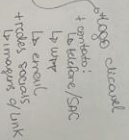 + logo clicável
+ contato:
↳ telefone/SAC
↳ wpp
↳ email
+ redes sociais
↳ imagens c/ link